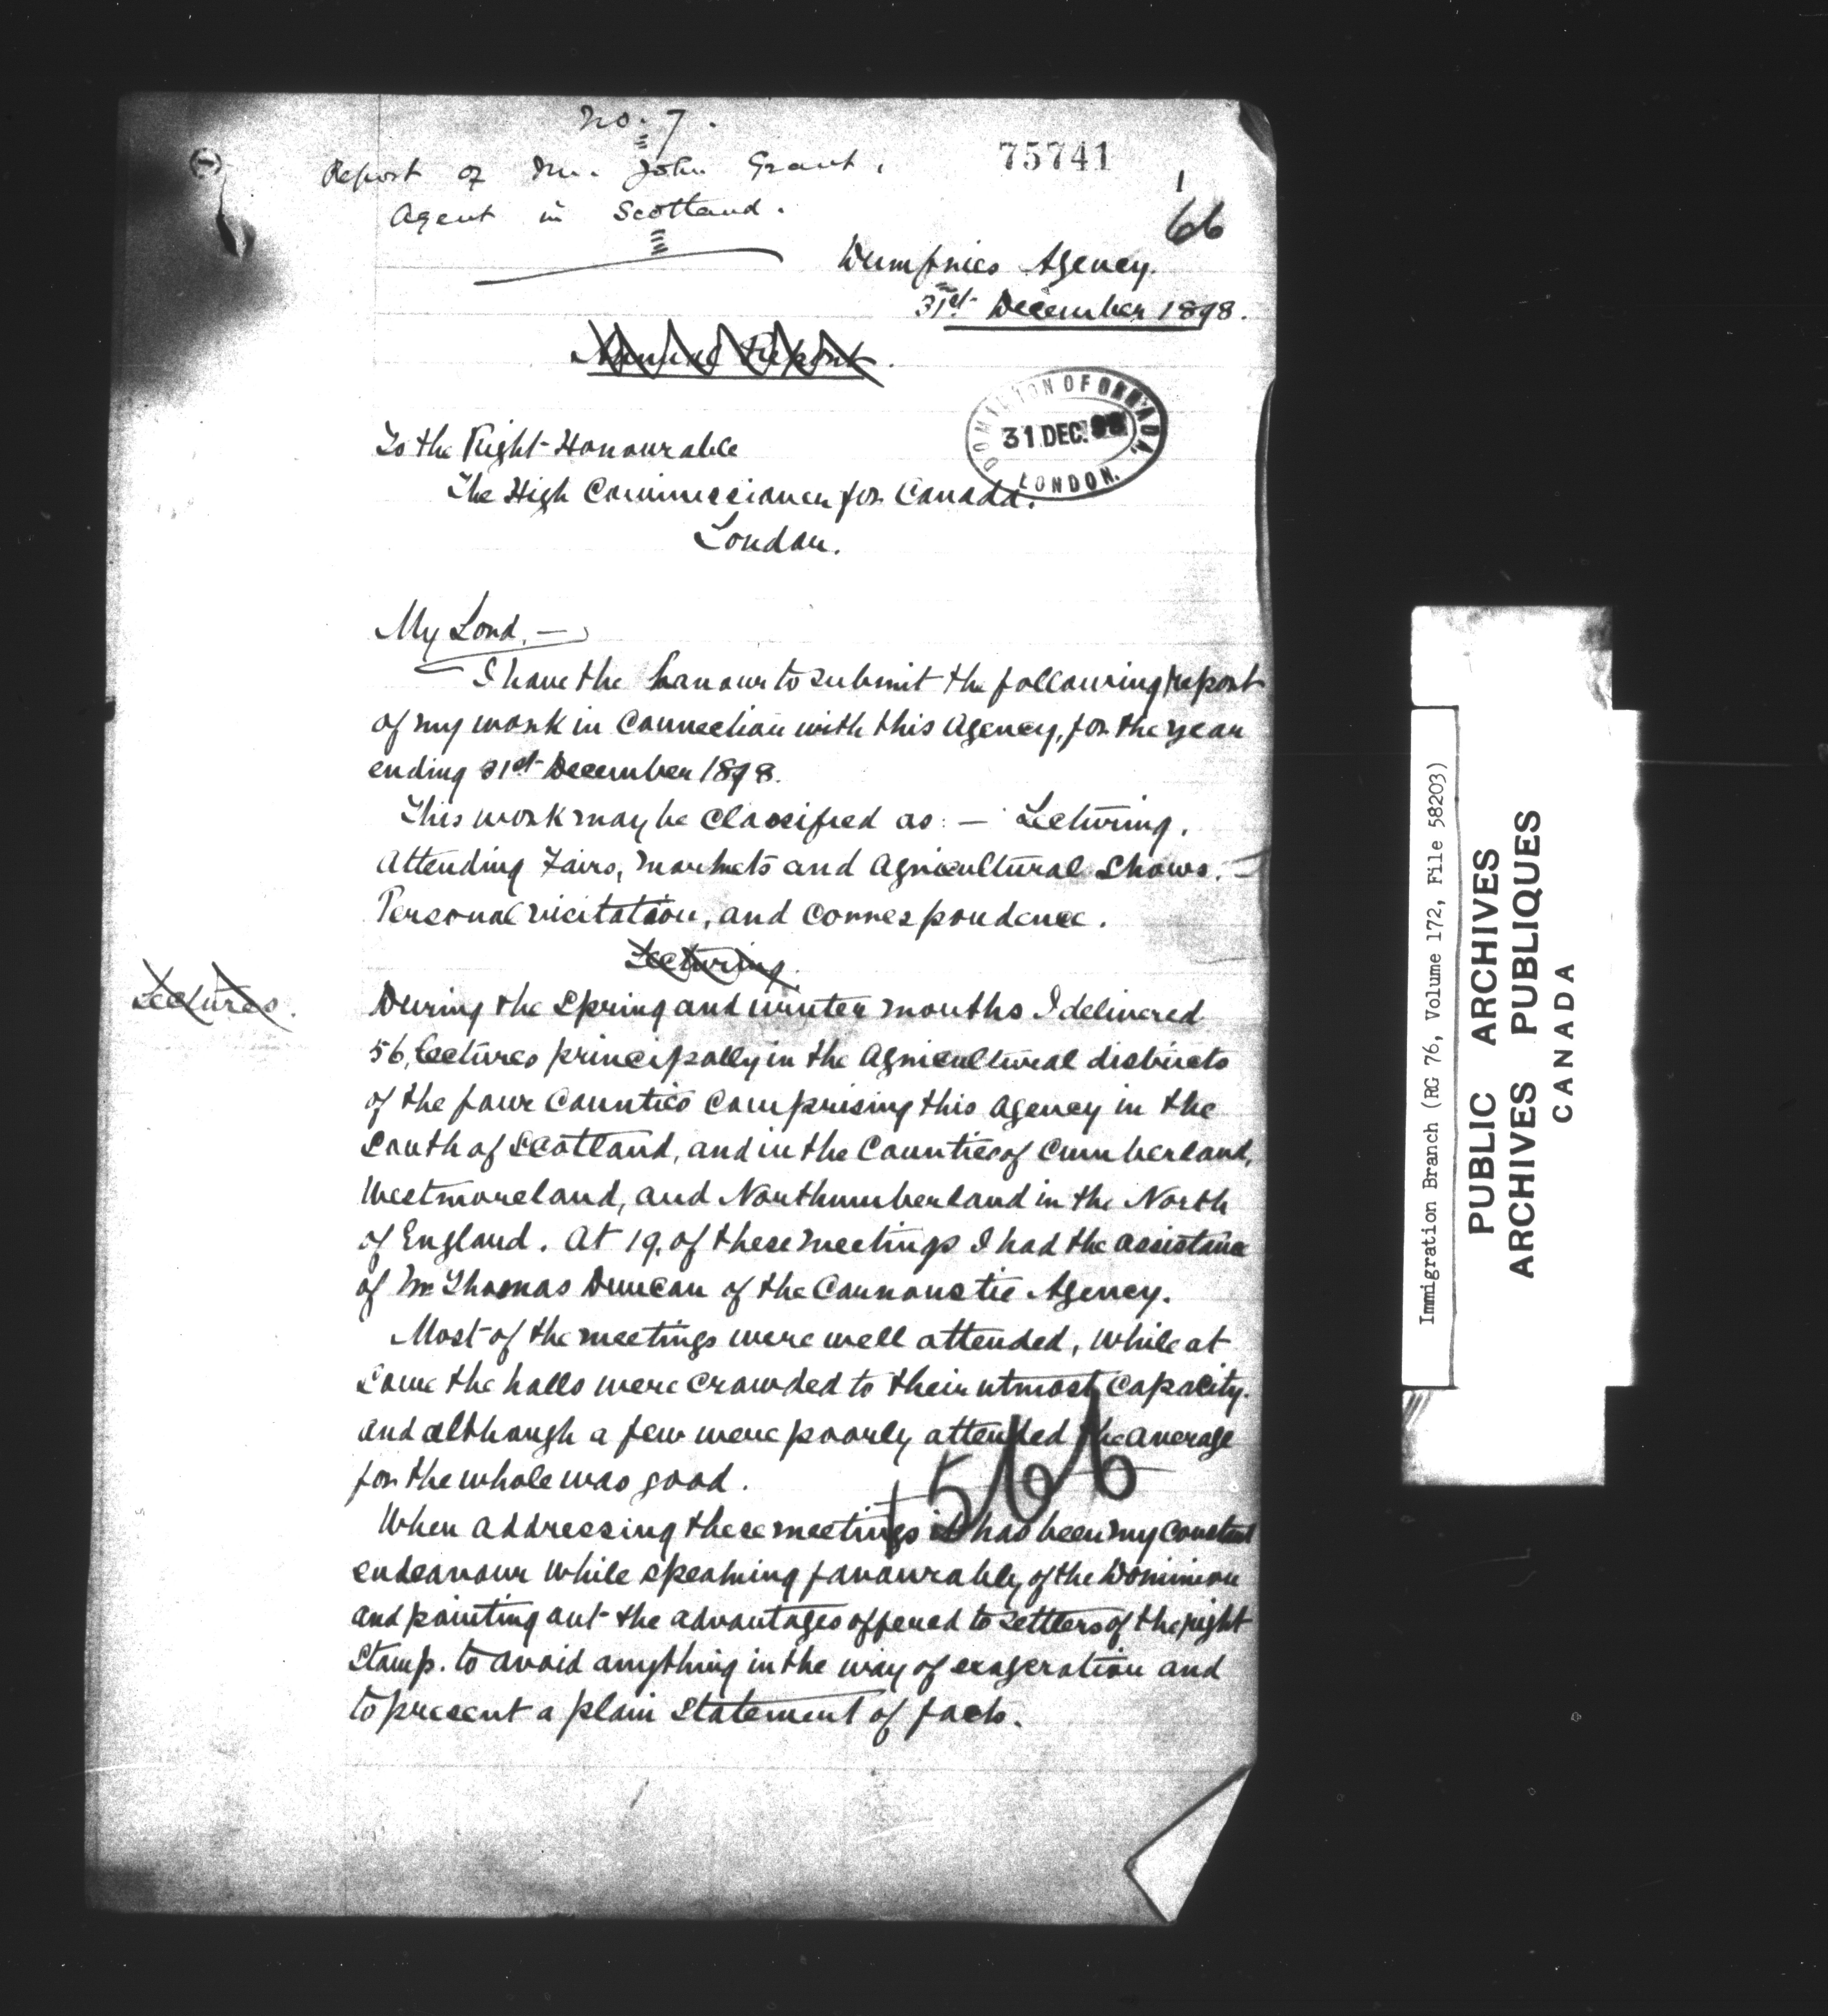 No. 7.
Report of Mr. John Grant,
Agent in Scotland.
75741
1
66
Dumfries Agency.
31st December 1898.
Annual Report.
DOMINION OF CANADA.
31 DEC. 98
LONDON.
To the Right Honourable
The High Commissioner for Canada.
London.
My Lord, —
I have the honour to submit the following report
of my work in Connection with this Agency, for the year
ending 31st December 1898.
This work may be Classified as: — Lecturing.
Attending Fairs, Markets and Agricultural Shows. —
Personal visitation, and Correspondence.
Lecturing.
Lectures.
During the Spring and winter months I delivered
56, Lectures principally in the Agricultural districts
of the four Counties Comprising this Agency in the
South of Scotland, and in the Counties of Cumberland,
Westmoreland, and Northumberland in the North
of England. At 19, of these meetings I had the assistance
of Mr Thomas Duncan of the Carnoustie Agency.
Most of the meetings were well attended, while at
Some the halls were Crowded to their utmost Capacity.
and although a few were poorly attended the average
for the whole was good.
566
When addressing these meetings it has been my Constant
endeavour while speaking favourably of the Dominion
and pointing out the advantages offered to settlers of the right
Stamp. to avoid anything in the way of exageration and
to present a plain Statement of facts.
Immigration Branch (RG 76, Volume 172, File 58203)
PUBLIC ARCHIVES
ARCHIVES PUBLIQUES
CANADA